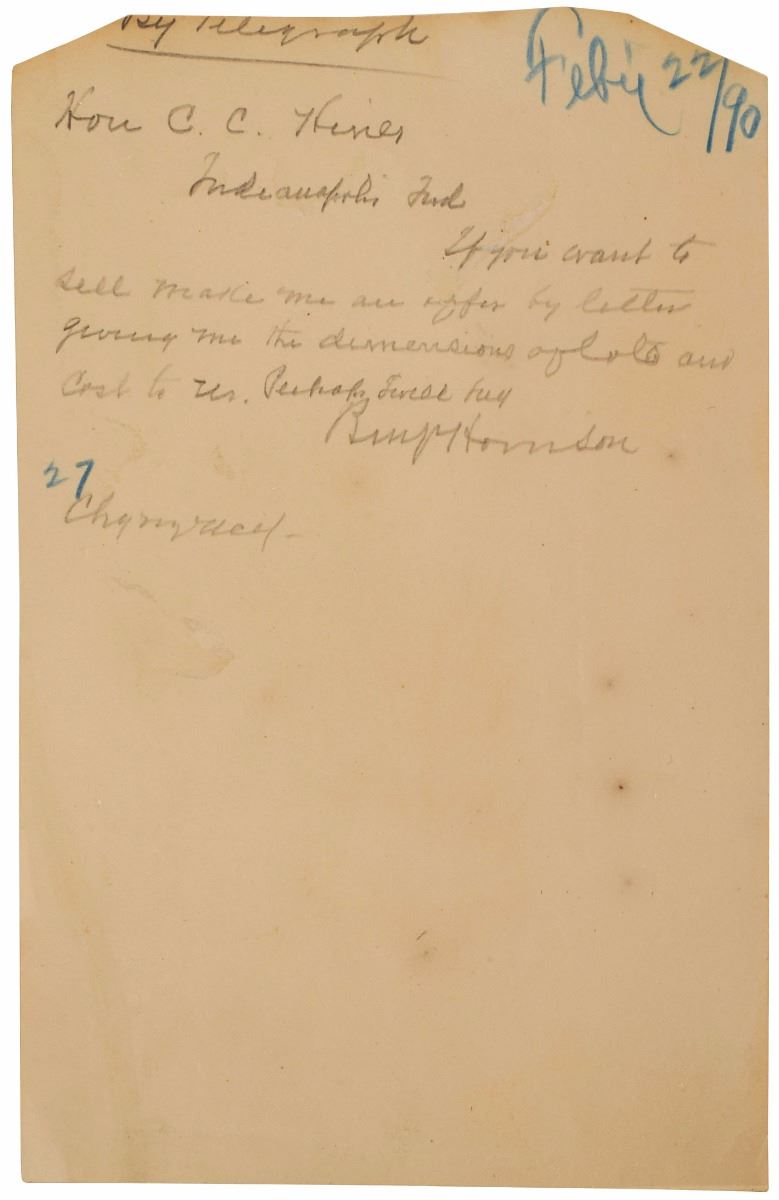 By Telegraph
Feby 22/90
Hon C. C. Hines
Indianapolis Ind
If you want to
sell make me an offer by letter
giving me the dimensions of lots and
cost to us. Perhaps I will buy
Benj Harrison
27
Chg